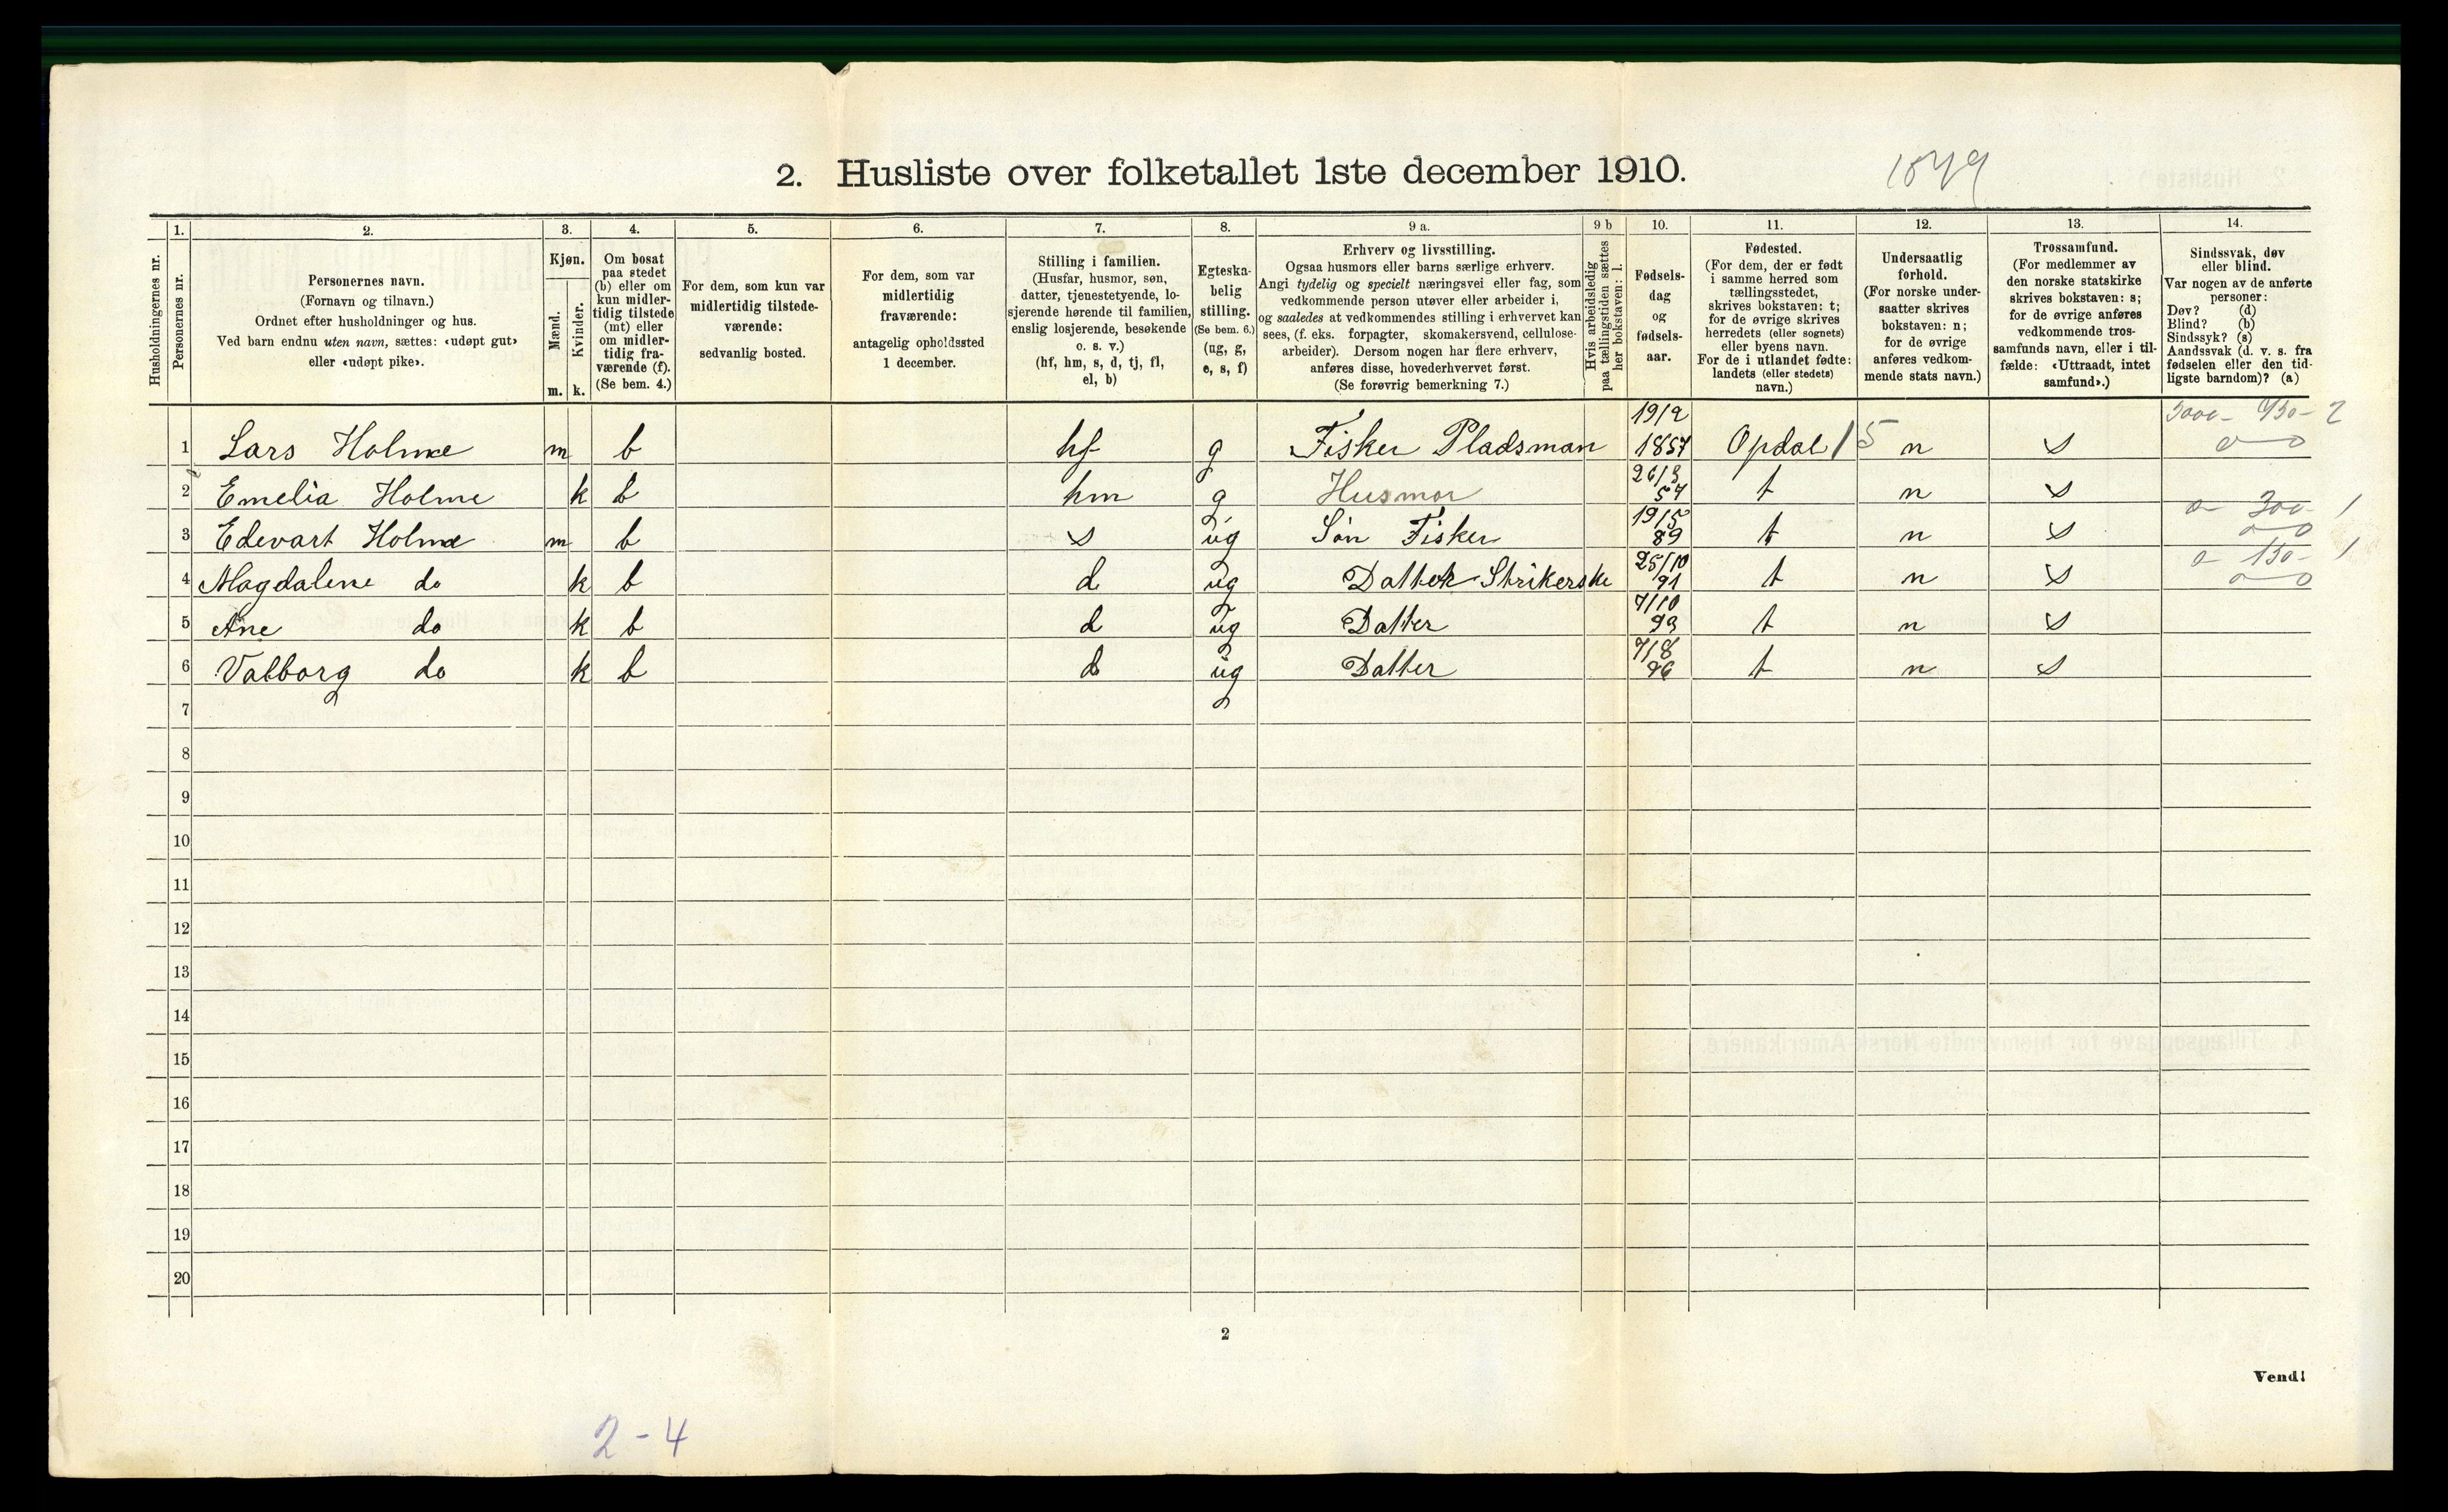 2. Husliste over folketallet 1ste december 1910.
1549
Husholdningernes nr.
1. Personernes nr.
2. Personernes navn.
(Fornavn og tilnavn.)
Ordnet efter husholdninger og hus.
Ved barn endnu uten navn, sættes: «udøpt gut»
eller «udøpt pike».
3. Kjøn.
Mænd. Kvinder.
m. k.
4. Om bosat
paa stedet
(b) eller om
kun midler-
tidig tilstede
(mt) eller
om midler-
tidig fra-
værende (f).
(Se bem. 4.)
5. For dem, som kun var
midlertidig tilstede-
værende:
sedvanlig bosted.
6. For dem, som var
midlertidig
fraværende:
antagelig opholdssted
1 december.
7. Stilling i familien.
(Husfar, husmor, søn,
datter, tjenestetyende, lo-
sjerende hørende til familien,
enslig losjerende, besøkende
o. s. v.)
(hf, hm, s, d, tj, fl,
el, b)
8. Egteska-
belig
stilling.
(Se bem. 6.)
(ug, g,
e, s, f)
9 a. Erhverv og livsstilling.
Ogsaa husmors eller barns særlige erhverv.
Angi tydelig og specielt næringsvei eller fag, som
vedkommende person utøver eller arbeider i,
og saaledes at vedkommendes stilling i erhvervet kan
sees, (f. eks. forpagter, skomakersvend, cellulose-
arbeider). Dersom nogen har flere erhverv,
anføres disse, hovederhvervet først.
(Se forøvrig bemerkning 7.)
9 b Hvis arbeidsledig
paa tællingstiden sættes
her bokstaven: l.
10. Fødsels-
dag
og
fødsels-
aar.
11. Fødested.
(For dem, der er født
i samme herred som
tællingsstedet,
skrives bokstaven: t;
for de øvrige skrives
herredets (eller sognets)
eller byens navn.
For de i utlandet fødte:
landets (eller stedets)
navn.)
12. Undersaatlig
forhold.
(For norske under-
saatter skrives
bokstaven: n;
for de øvrige
anføres vedkom-
mende stats navn.)
13. Trossamfund.
(For medlemmer av
den norske statskirke
skrives bokstaven: s;
for de øvrige anføres
vedkommende tros-
samfunds navn, eller i til-
fælde: «Uttraadt, intet
samfund».)
14. Sindssvak, døv
eller blind.
Var nogen av de anførte
personer:
Døv? (d)
Blind? (b)
Sindssyk? (s)
Aandssvak (d. v. s. fra
fødselen eller den tid-
ligste barndom)? (a)
1 Lars Holme m b hf g Fisker Pladsman 19/2 1857 Opdal 15 n s
2 Emelia Holme k b hm g Husmor 26/3 57 t n s
3 Edevart Holme m b s ug Søn Fisker 19/5 89 t n s
4 Magdalene do k b d ug Datter Strikerske 25/10 91 t n s
5 Ane do k b d ug Datter 7/10 93 t n s
6 Valborg do k b d ug Datter 7/8 96 t n s
7
8
9
10
11
12
13
14
15
16
17
18
19
20
2
Vend!
2-4